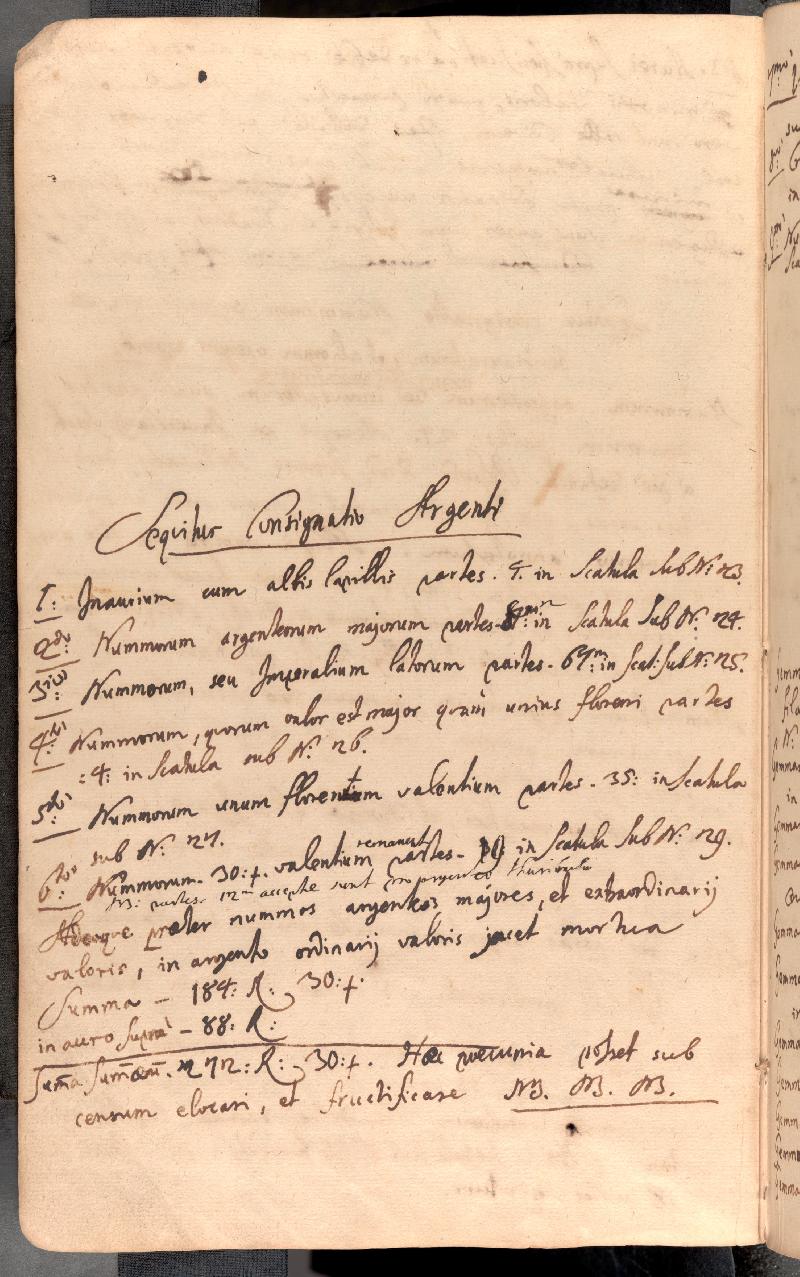 Sequitur Consignatio Argenti
1: Inaurium cum albis lapillis partes. 4. in Scatula Sub N: 23.
2do: Nummorum argenteorum majorum partes in Scatula Sub N: 24.
3tio: Nummorum, seu Imperalium latorum partes. 67m: in Scat: Sub N: 25.
4to: Nummorum, quorum valor est major quam unius floreni partes
:4: in Scatula sub N: 26.
5to: Nummorum unum florenum valentium partes. 35: in Scatula
sub N: 27.
6to: Nummorum. 30: +. valentium remanent partes. in Scatula Sub N: 29.
NB: partes. 12m acceptae sunt pro argenteo thuribulo
Adeoque praeter nummos argenteos majores, et extraordinarij
valoris, in argento ordinarij valoris jacet mortua
Summa – 184: R: 30: +.
in auro supra – 88: R:
Suma sumarum. 272: R: 30: +. Haec pecunia posset sub
censum elocari, et fructificare NB. NB. NB.